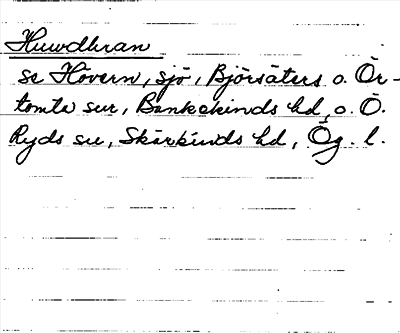 Huwdhran
se Hövern, sjö, Björsäters o. Ör-
tomta snr, Bankekinds hd, o. Ö.
Ryds sn, Skärkinds hd, Ög. l.